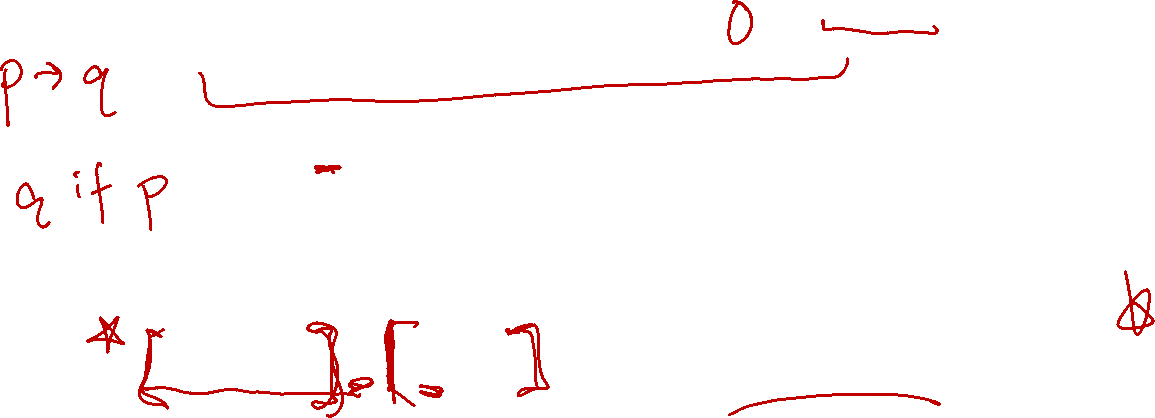 0
p → q
q if p
* [ ] [ ]